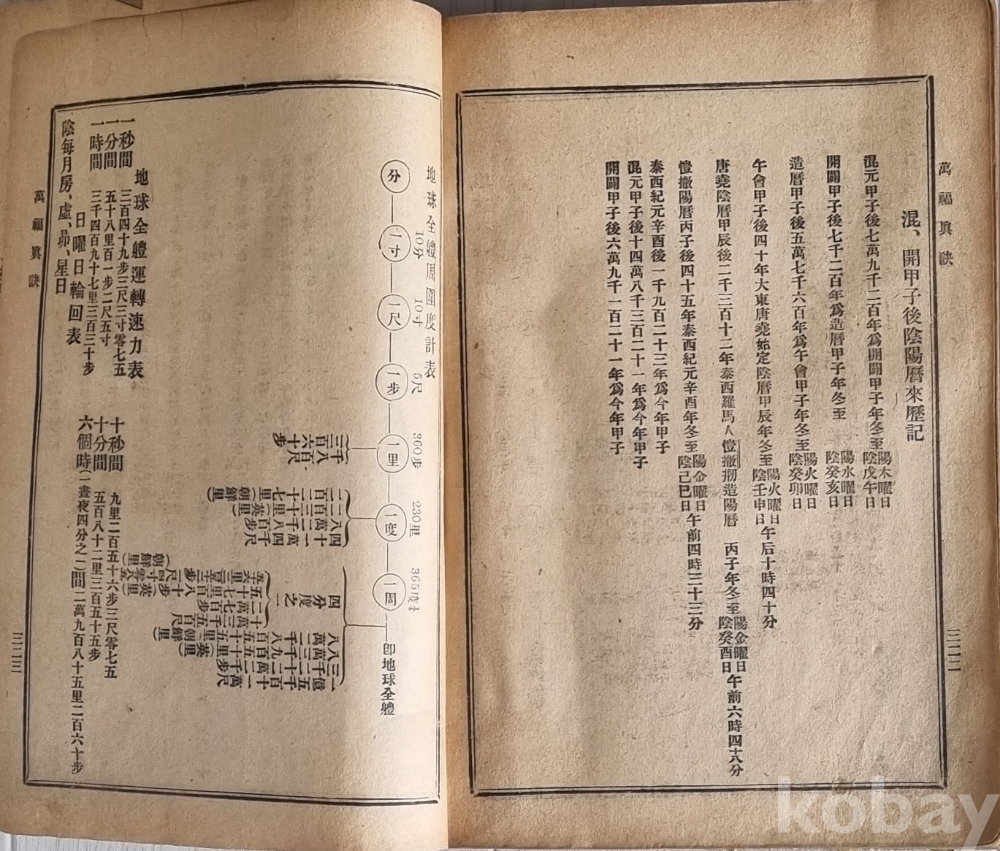 萬福眞訣
混、開甲子後陰陽曆來歷記
混元甲子後七萬九千二百年爲開闢甲子年冬至 陽木曜日 陰戊午日
開闢甲子後七千二百年爲造曆甲子年冬至 陽水曜日 陰癸亥日
造曆甲子後五萬七千六百年爲午會甲子年冬至 陽火曜日 陰癸卯日
午會甲子後四十年大東唐堯始定陰曆甲辰年冬至 陽火曜日 陰壬申日 午后十時四十分
唐堯陰曆甲辰後二千三百十二年泰西羅馬人愷撤刱造陽曆 丙子年冬至 陽金曜日 陰癸酉日 午前六時四十八分
愷撤陽曆丙子後四十五年泰西紀元辛酉年冬至 陽金曜日 陰己巳日 午前四時三十三分
泰西紀元辛酉後一千九百二十三年爲今年甲子
混元甲子後十四萬八千三百二十一年爲今年甲子
開闢甲子後六萬九千一百二十一年爲今年甲子
地球全體周圍度計表
分
10分
一寸
10寸
一尺
5尺
一步
360步
一里
230里
一度
365度
一周
卽地球全體
四分度之一
地球全體運轉速力表
一秒間 三百四十九步三尺三寸零七五
一分間 五十八里百一步二尺五寸
一時間 三千四百九十七里三百三十步
十秒間 九里二百五十六步三尺零七五
十分間 五百八十二里三百五十五步
六個時(一晝夜四分之一)間二萬九百八十五里二百六十步
日曜日輪回表
陰每月房、虛、昴、星日
萬福眞訣
kobay